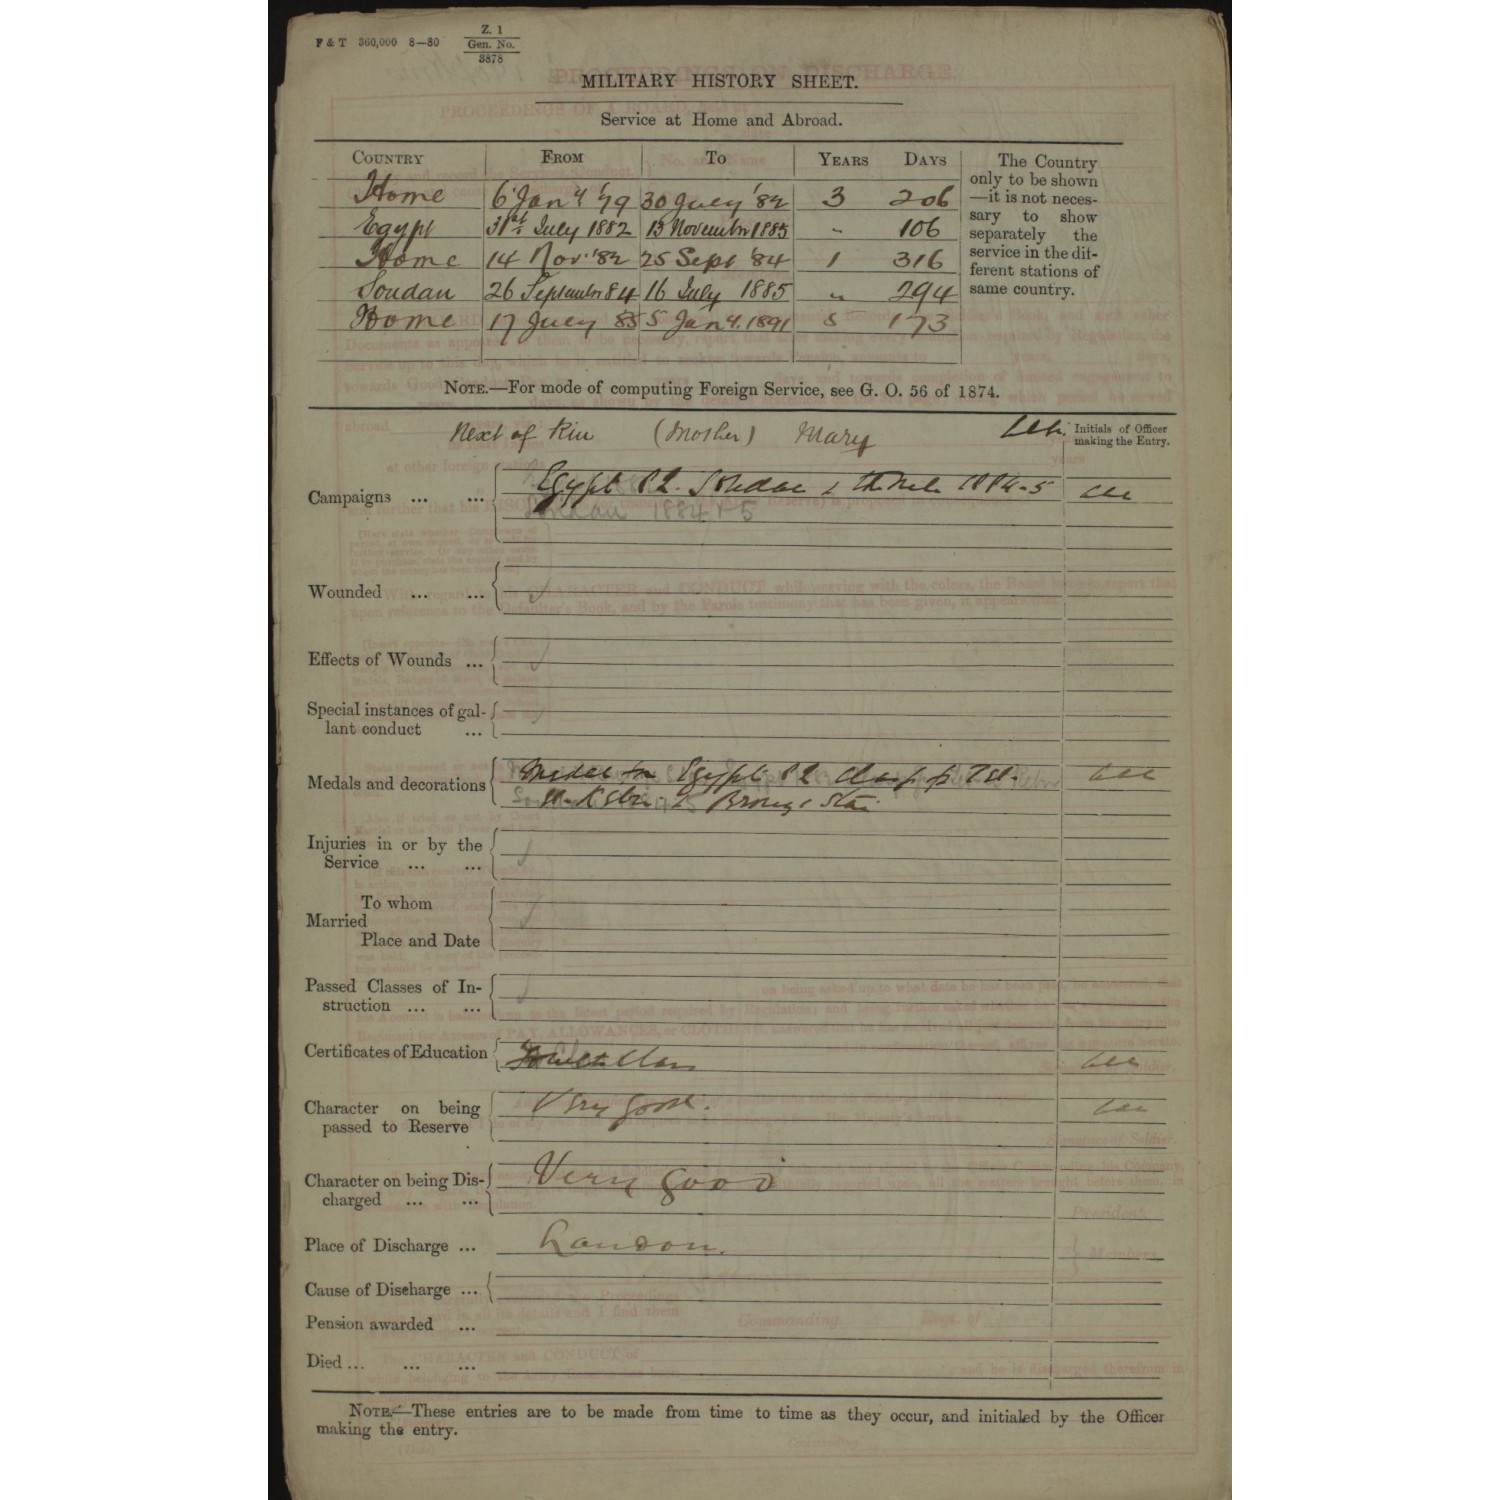 F & T 360,000 8—80
Z. 1
Gen. No.
3878
MILITARY HISTORY SHEET.
Service at Home and Abroad.
COUNTRY FROM TO YEARS DAYS
Home 6 Jany '79 30 July '82 3 206
Egypt 31st July 1882 13 November 1883 " 106
Home 14 Nov. '82 25 Sept '84 1 316
Soudan 26 September 84 16 July 1885 " 294
Home 17 July 85 5 Jany. 1891 5 173
The Country
only to be shown
—it is not neces-
sary to show
separately the
service in the dif-
ferent stations of
same country.
NOTE.—For mode of computing Foreign Service, see G. O. 56 of 1874.
Next of Kin (Mother) Mary
Initials of Officer
making the Entry.
Campaigns ... ...
Egypt 82. Soudan & the Nile 1884-5
Soudan 1884 & 5
Wounded ... ...
Effects of Wounds ...
Special instances of gal-
lant conduct ...
Medals and decorations
Medal for Egypt 82 Clasp for Tel-
el-Kebir & Bronze Star
Injuries in or by the
Service ... ...
To whom
Married
Place and Date
Passed Classes of In-
struction ... ...
Certificates of Education
Class
Character on being
passed to Reserve
Very good.
Character on being Dis-
charged ... ...
Very good
Place of Discharge ...
London.
Cause of Discharge ...
Pension awarded ...
Died ... ... ...
NOTE.—These entries are to be made from time to time as they occur, and initialed by the Officer
making the entry.